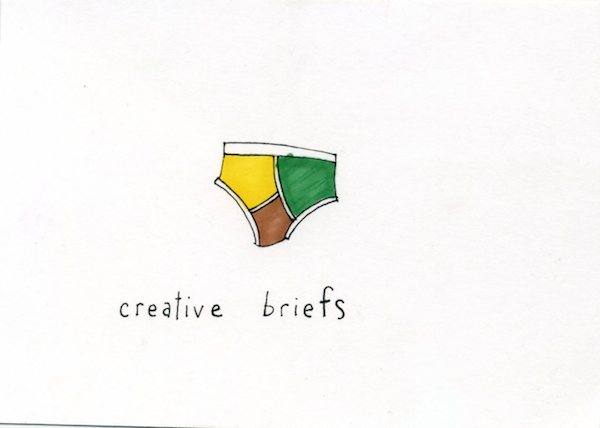 creative briefs